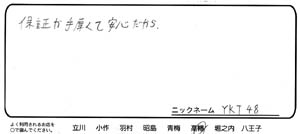 保証が手厚くて安心だから.
ニックネーム YKT48
よく利用されるお店を
○で囲んでください。 立川 小作 羽村 昭島 青梅 高幡 堀之内 八王子